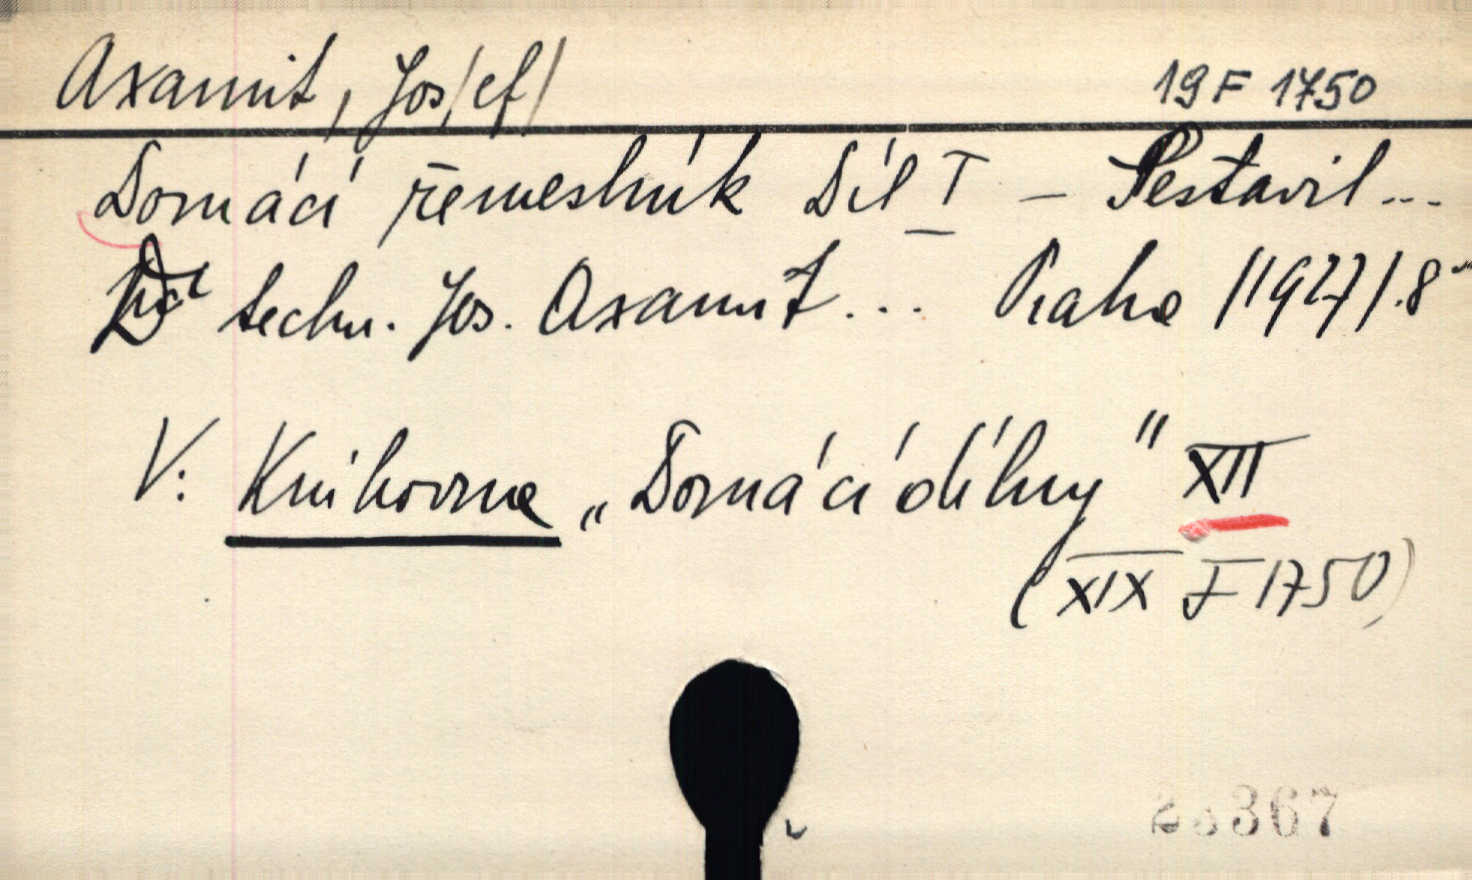 Axamit, Jos/ef/ 19 F 1750
Domácí řemeslník Díl I – Sestavil...
techn. Jos. Axamit... Praha /1927/. 8°
V: Knihovna „Domácí dílny" XII
(XIX F 1750)